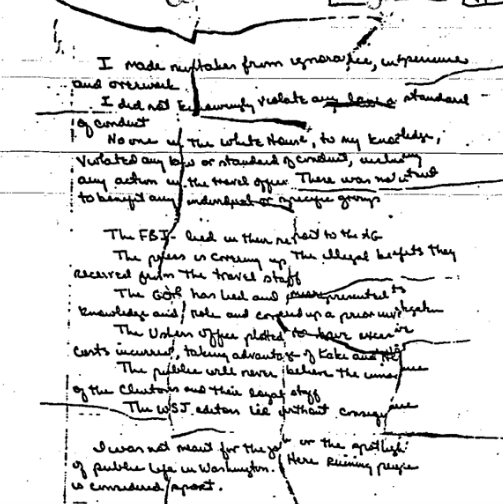 I made mistakes from ignorance, inexperience
and overwork
I did not knowingly violate any law or standard
of conduct
No one in the White House, to my knowledge,
violated any law or standard of conduct, including
any action in the travel office. There was no intent
to benefit any individual or specific group
The FBI lied in their report to the AG
The press is covering up the illegal benefits they
received from the travel staff
The GOP has lied and misrepresented its
knowledge and role and covered up a prior investigation
The Ushers Office plotted to have excessive
costs incurred, taking advantage of Kaki and HRC
The public will never believe the innocence
of the Clintons and their loyal staff
The WSJ editors lie without consequence
I was not meant for the job or the spotlight
of public life in Washington. Here ruining people
is considered sport.